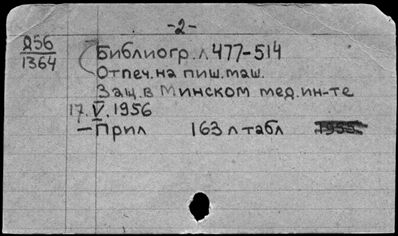 -2-
256
1364
Библиогр. л 477-514
Отпеч. на пиш. маш.
Защ. в Минском мед. ин-те
17. V. 1956
- Прил 163 л табл 1955